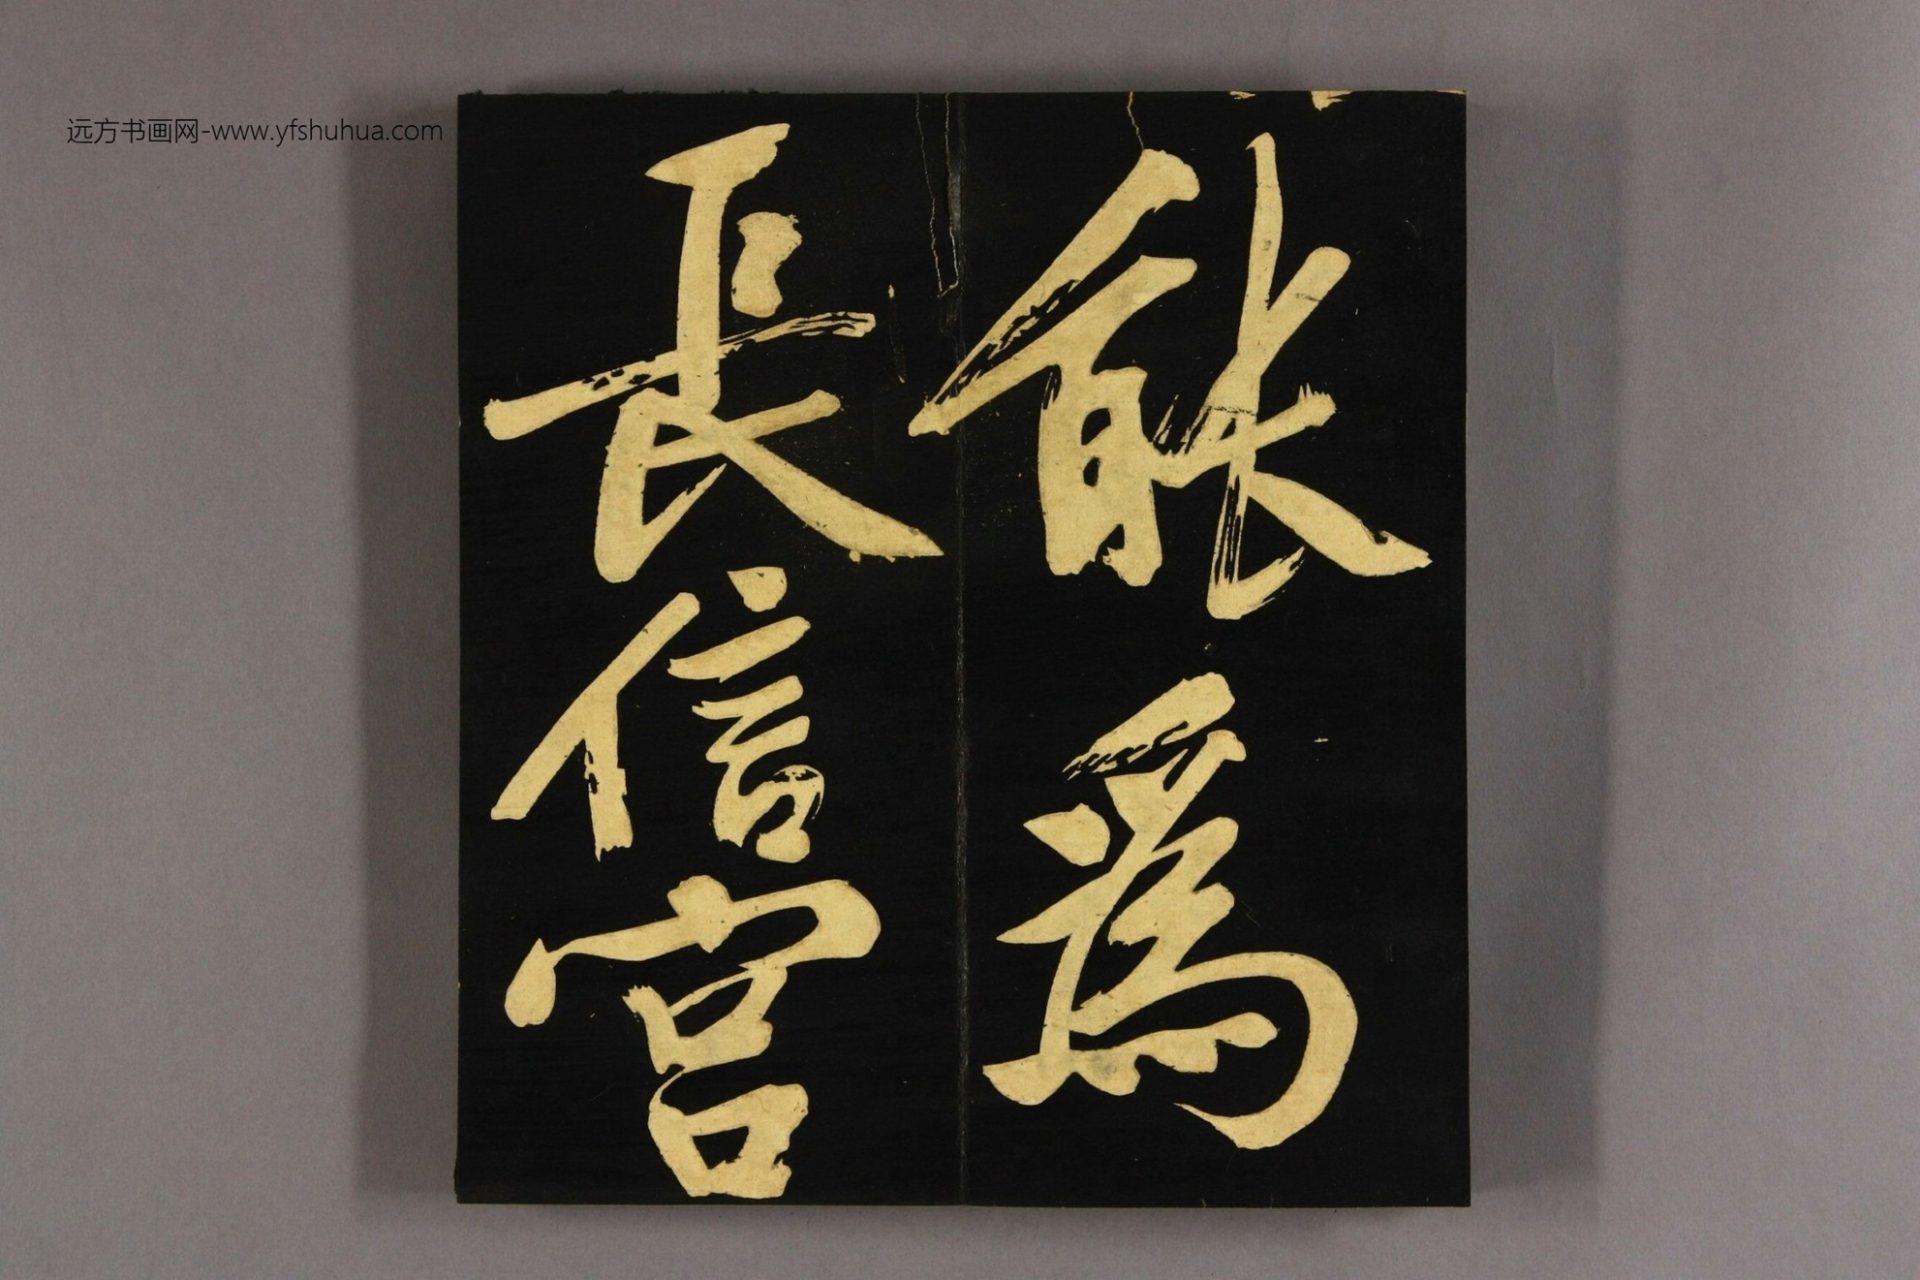 远方书画网-www.yfshuhua.com
能為
長信宮